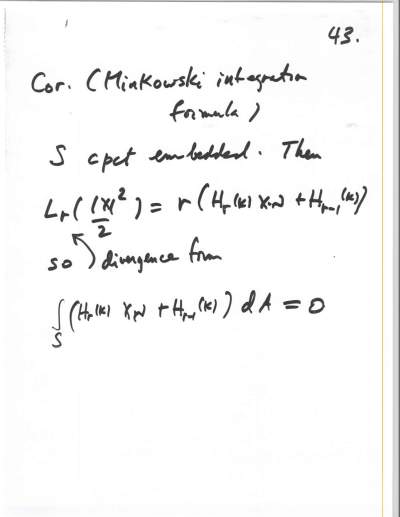 43.
Cor. (Minkowski integration
formula)
S cpct embedded. Then
L_r(|X|²/2) = r(H_r(K) X·N + H_{r-1}(K))
so divergence form
∫_S (H_r(K) X·N + H_{r-1}(K)) dA = 0